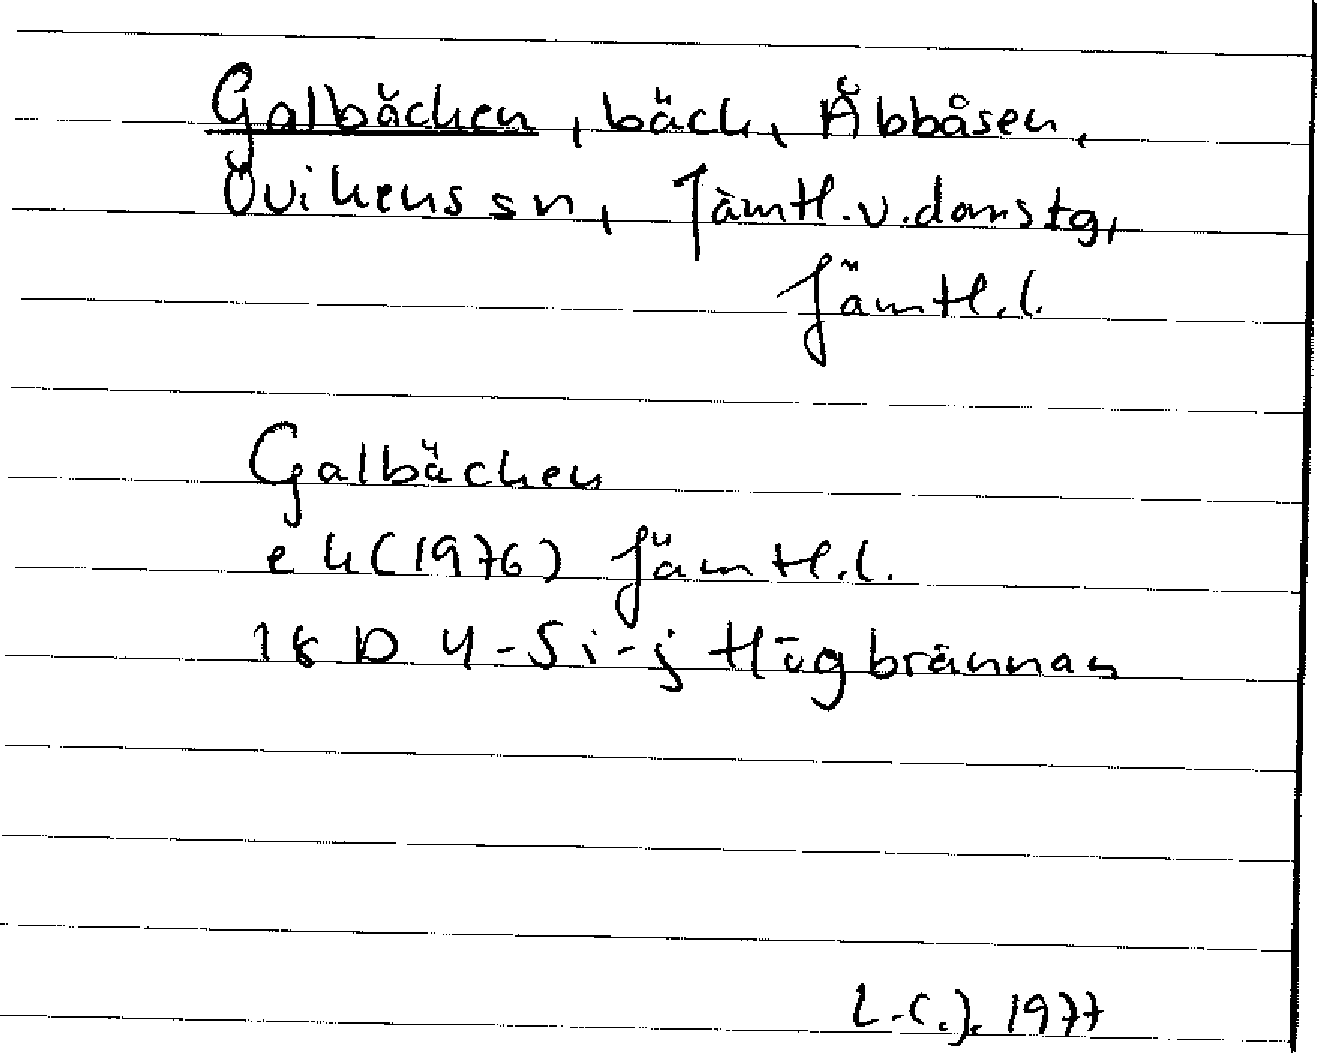 Galbäcken, bäck, Åbbåsen,
Ovikens sn, Jämtl.v.domstg,
Jämtl.l.
Galbäcken
ek (1976) Jämtl.l.
18 D 4-5 i-j Högbrännan
L.C.J. 1977